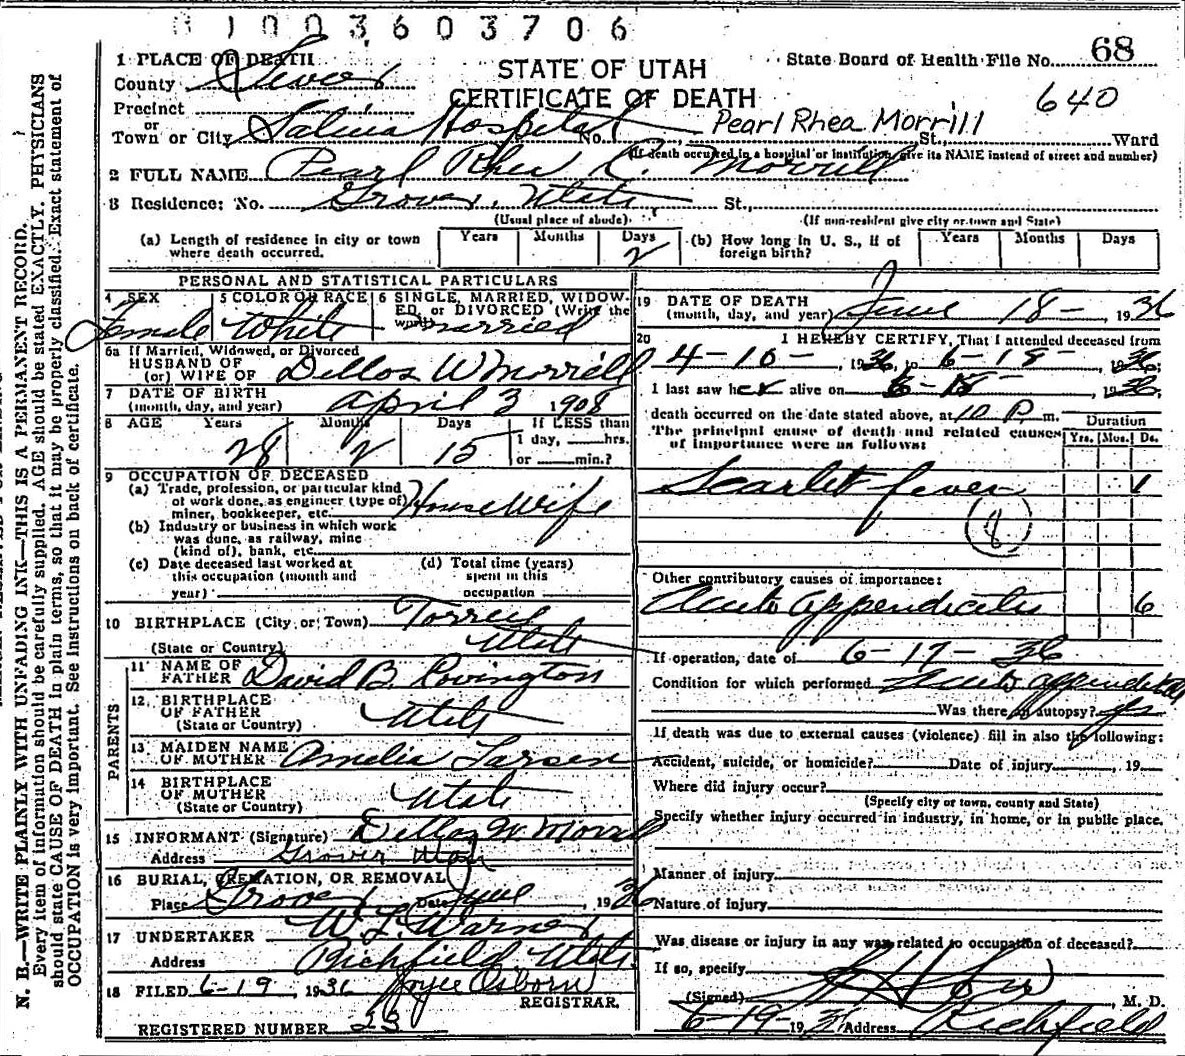 01003603706
1 PLACE OF DEATH
County Sevier
Precinct
or
Town or City Salina Hospital No. St., Ward
STATE OF UTAH
CERTIFICATE OF DEATH
State Board of Health File No. 68
640
Pearl Rhea Morrill
(If death occurred in a hospital or institution, give its NAME instead of street and number)
2 FULL NAME Pearl Rhea C. Morrill
3 Residence: No. Grover, Utah St.,
(Usual place of abode) (If non-resident give city or town and State)
(a) Length of residence in city or town where death occurred. Years Months Days 2
(b) How long in U. S., if of foreign birth? Years Months Days
PERSONAL AND STATISTICAL PARTICULARS
4 SEX Female
5 COLOR OR RACE White
6 SINGLE, MARRIED, WIDOWED, or DIVORCED (Write the word) married
6a If Married, Widowed, or Divorced
HUSBAND OF
(or) WIFE OF Dellos W Morrill
7 DATE OF BIRTH
(month, day, and year) April 3 1908
8 AGE Years 28 Months 2 Days 15
If LESS than
1 day, hrs.
or min.?
9 OCCUPATION OF DECEASED
(a) Trade, profession, or particular kind
of work done, as engineer (type of)
miner, bookkeeper, etc. House Wife
(b) Industry or business in which work
was done, as railway, mine
(kind of), bank, etc.
(c) Date deceased last worked at
this occupation (month and
year)
(d) Total time (years)
spent in this
occupation
10 BIRTHPLACE (City or Town) Torrey
(State or Country) Utah
PARENTS
11 NAME OF
FATHER David B. Covington
12 BIRTHPLACE
OF FATHER
(State or Country) Utah
13 MAIDEN NAME
OF MOTHER Amelia Larsen
14 BIRTHPLACE
OF MOTHER
(State or Country) Utah
15 INFORMANT (Signature) Dellos W. Morrill
Address Grover Utah
16 BURIAL, CREMATION, OR REMOVAL
Place Grover Date June , 1936
17 UNDERTAKER W. L. Warner
Address Richfield Utah
18 FILED 6-19, 1936 Joyce Osborn
REGISTRAR.
REGISTERED NUMBER 23
19 DATE OF DEATH
(month, day, and year) June 18-, 1936
20 I HEREBY CERTIFY, That I attended deceased from
4-10-, 1936, to 6-18-, 1936;
I last saw her alive on 6-18, 1936;
death occurred on the date stated above, at 10 P. m.
The principal cause of death and related causes
of importance were as follows:
Duration
Yrs. Mos. Ds.
Scarlet fever 1
8
Other contributory causes of importance:
Acute appendicitis 6
If operation, date of 6-17-36
Condition for which performed Acute appendicitis
Was there an autopsy? yes
If death was due to external causes (violence) fill in also the following:
Accident, suicide, or homicide? Date of injury , 19
Where did injury occur?
(Specify city or town, county and State)
Specify whether injury occurred in industry, in home, or in public place.
Manner of injury
Nature of injury
Was disease or injury in any way related to occupation of deceased?
If so, specify
(Signed) , M. D.
6-19, 193 Address Richfield
N. B.—WRITE PLAINLY WITH UNFADING INK—THIS IS A PERMANENT RECORD.
Every item of information should be carefully supplied. AGE should be stated EXACTLY. PHYSICIANS
should state CAUSE OF DEATH in plain terms, so that it may be properly classified. Exact statement of
OCCUPATION is very important. See instructions on back of certificate.